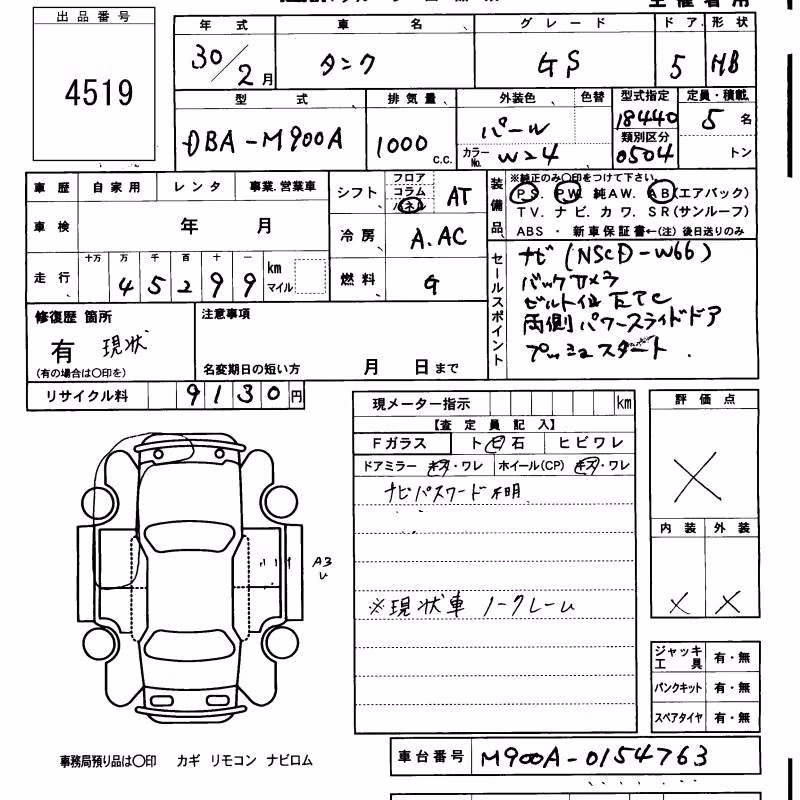 出品番号
4519
年式 車名 グレード ドア 形状
30/2月 タンク GS 5 HB
型式 排気量 外装色 色替 型式指定 定員・積載
DBA-M900A 1000 c.c. パール 18440 5名
カラーNo. W24 類別区分 0504 トン
車歴 自家用 レンタ 事業.営業車
車検 年 月
走行 十万 万 千 百 十 一
45299 km マイル
シフト フロア コラム パネル AT
冷房 A.AC
燃料 G
装備品
※純正のみ〇印をつけて下さい。
PS. PW. 純AW. AB(エアバック)
TV. ナビ. カワ. SR(サンルーフ)
ABS ・ 新車保証書←(注)後日送りのみ
セールスポイント
ナビ (NSCD-W66)
バックカメラ
ビルトイン ETC
両側パワースライドドア
プッシュスタート.
修復歴 箇所
有 現状
(有の場合は〇印を)
注意事項
名変期日の短い方 月 日まで
リサイクル料 9130円
現メーター指示 km
【査定員記入】
Fガラス ト ビ 石 ヒビワレ
ドアミラー キズ・ワレ ホイール(CP) キズ・ワレ
ナビパスワード不明
※現状車 ノークレーム
評価点
×
内装 外装
× ×
A3
ジャッキ工具 有・無
パンクキット 有・無
スペアタイヤ 有・無
事務局預り品は〇印 カギ リモコン ナビロム
車台番号 M900A-0154763